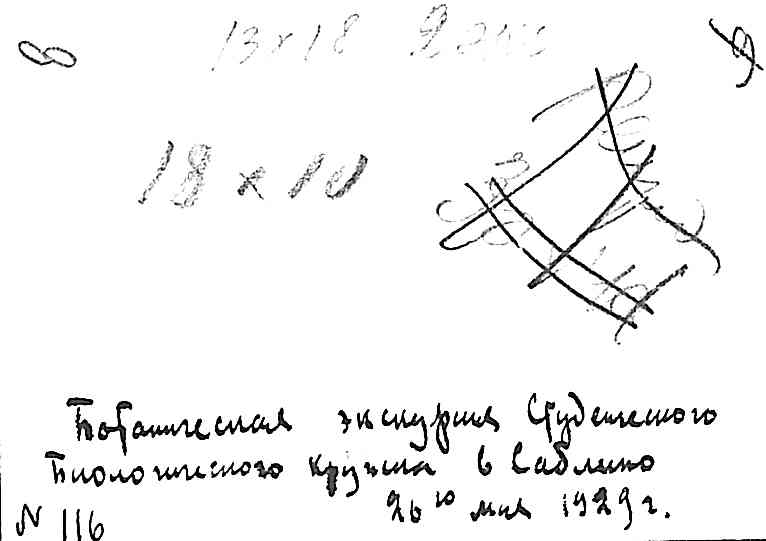 8
13x18 2 экз
18 x 10
Ботаническая экскурсия Студенческого
Биологического кружка в Саблино
26го мая 1929 г.
N 116